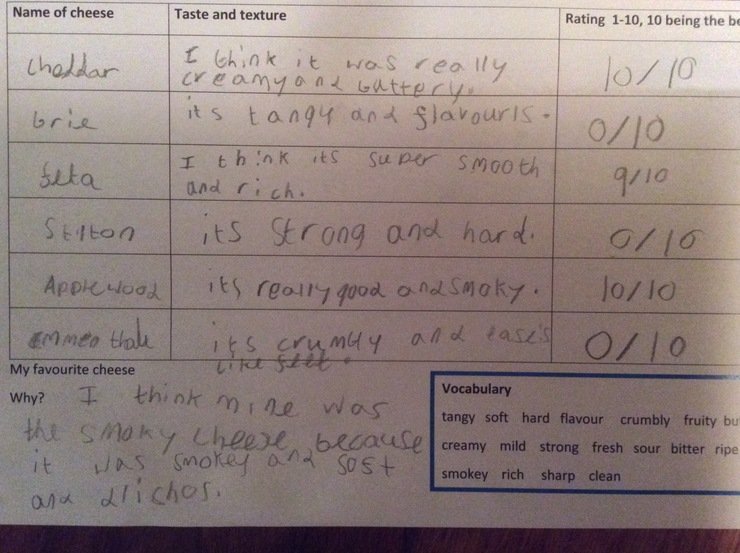 Name of cheese Taste and texture Rating 1-10, 10 being the be
Cheddar I think it was really 10/10
creamy and buttery.
brie its tangy and flavourls. 0/10
feta I think its super smooth 9/10
and rich.
Stilton its strong and hard. 0/10
Applewood its really good and smoky. 10/10
emmen thale its crumbly and tases 0/10
like feet.
My favourite cheese
Why? I think mine was
the smoky cheese because
it was smokey and soft
and dlichos.
Vocabulary
tangy soft hard flavour crumbly fruity bu
creamy mild strong fresh sour bitter ripe
smokey rich sharp clean